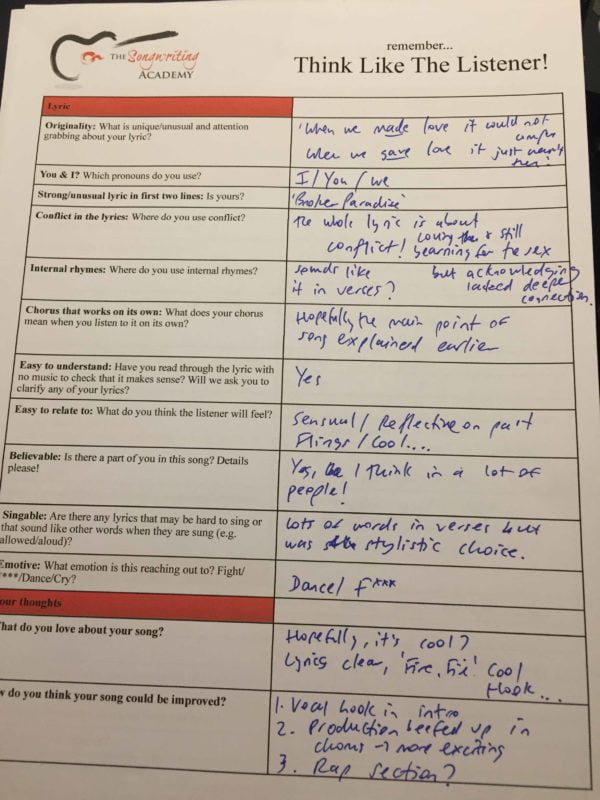 THE Songwriting
ACADEMY
remember...
Think Like The Listener!
Lyric
Originality: What is unique/unusual and attention
grabbing about your lyric?
'When we made love it could not
when we gave love it just
You & I? Which pronouns do you use?
I / You / we
Strong/unusual lyric in first two lines: Is yours?
'Broken Paradise'
Conflict in the lyrics: Where do you use conflict?
the whole lyric is about
conflict! loving & still
yearning for the sex
but acknowledging
lacked deeper
connection.
Internal rhymes: Where do you use internal rhymes?
sounds like
it in verses?
Chorus that works on its own: What does your chorus
mean when you listen to it on its own?
Hopefully the main point of
song explained earlier
Easy to understand: Have you read through the lyric with
no music to check that it makes sense? Will we ask you to
clarify any of your lyrics?
Yes
Easy to relate to: What do you think the listener will feel?
Sensual / Reflective on past
Flings / Cool....
Believable: Is there a part of you in this song? Details
please!
Yes, I think in a lot of
people!
Singable: Are there any lyrics that may be hard to sing or
that sound like other words when they are sung (e.g.
allowed/aloud)?
Lots of words in verses but
was stylistic choice.
Emotive: What emotion is this reaching out to? Fight/
****/Dance/Cry?
Dance / F***
our thoughts
hat do you love about your song?
Hopefully, it's cool?
Lyrics clear, 'Fire, Fire' Cool
Hook...
w do you think your song could be improved?
1. Vocal hook in intro
2. Production beefed up in
chorus → more exciting
3. Rap section?